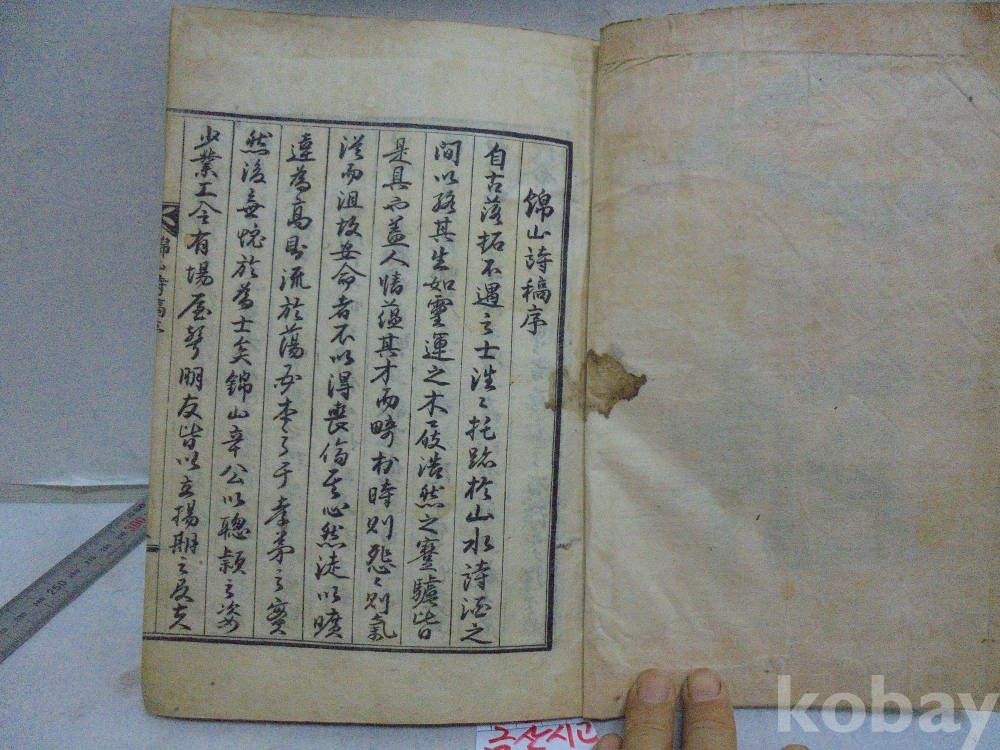 錦山詩稿序
自古落拓不遇之士浩〻托跡於山水詩酒之
間以終其生如靈運之木屐浩然之蹇驢皆
是具也蓋人情蘊其才而畸於時則怨〻則氣
從而沮故安命者不以得喪傷其心然徒以曠
違為高則流於蕩必本乎于孝弟之實
然後無愧於為士矣錦山辛公以聰穎之姿
少業工令有場屋聲朋友皆以立揚期之及夫
錦山詩稿序
금산시고
kobay